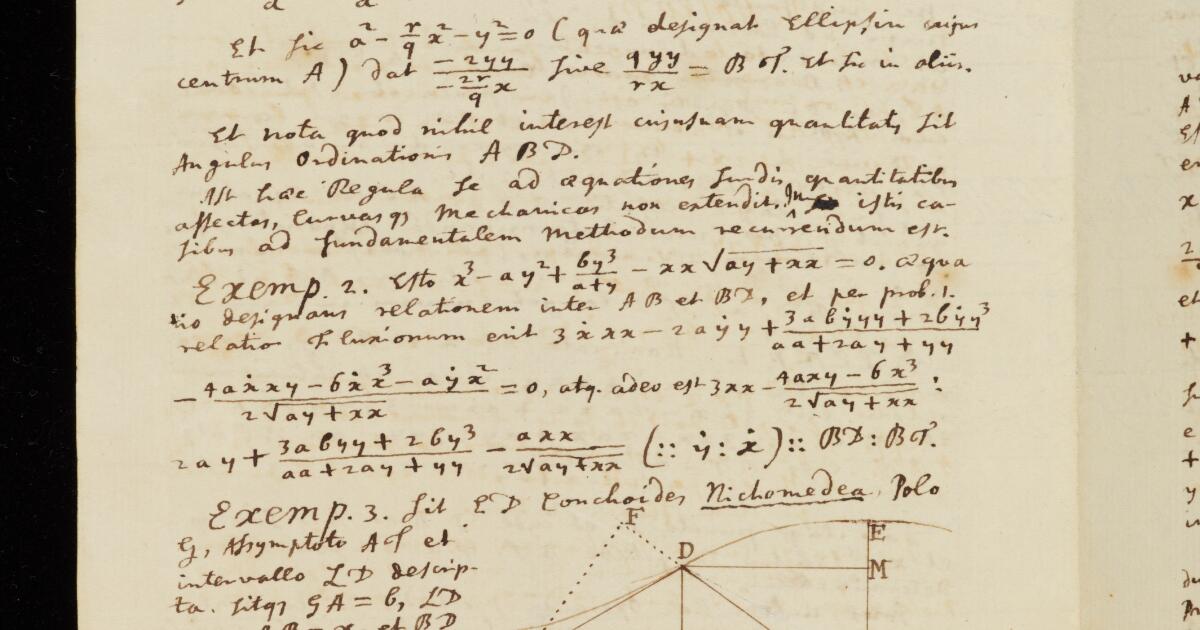 Et sic a² - r/q x² - y² = 0 (quæ designat Ellipsin cujus
centrum A) dat -2yy / -2r/q x sive qyy/rx = BT. Et sic in aliis.
Et nota quod nihil interest cujusnam quantitatis sit
Angulus Ordinationis ABD.
Ast hæc Regula se ad æquationes surdis quantitatibus
affectas, Curvasq; Mechanicas non extendit. In istis ca-
sibus ad fundamentalem Methodum recurrendum est.
Exemp. 2. Esto x³ - ay² + by³/a+y - xx√ay+xx = 0. æqua
tio designans relationem inter AB et BD, et per prob. 1.
relatio Fluxionum erit 3ẋxx - 2aẏy + 3abẏyy + 2bẏy³/aa+2ay+yy
- 4aẋxy - 6ẋx³ - aẏx²/2√ay+xx = 0, atq. adeo est 3xx - 4axy - 6x³/2√ay+xx :
2ay + 3abyy + 2by³/aa+2ay+yy - axx/2√ay+xx (:: ẏ : ẋ) :: BD : BT.
Exemp. 3. Sit ED Conchoides Nichomedea, Polo
G, Assymptoto AT et
intervallo LD descrip-
ta. Sitq; GA = b, LD
et BD
F
D
E
M